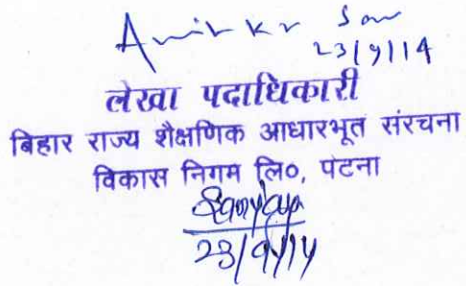 Anil Kr
23/9/14
लेखा पदाधिकारी
बिहार राज्य शैक्षणिक आधारभूत संरचना
विकास निगम लि०, पटना
23/9/14